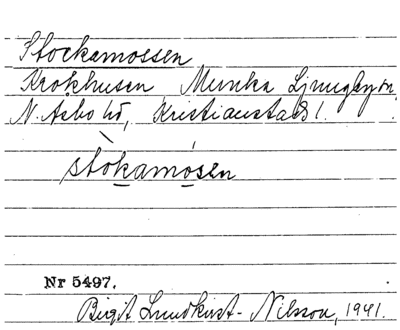 Stockamossen
Krokhusen Munka Ljungby sn,
N. Åsbo hd, Kristianstads l.
stòkamósen
Nr 5497.
Birgit Lundkvist-Nilsson, 1941.